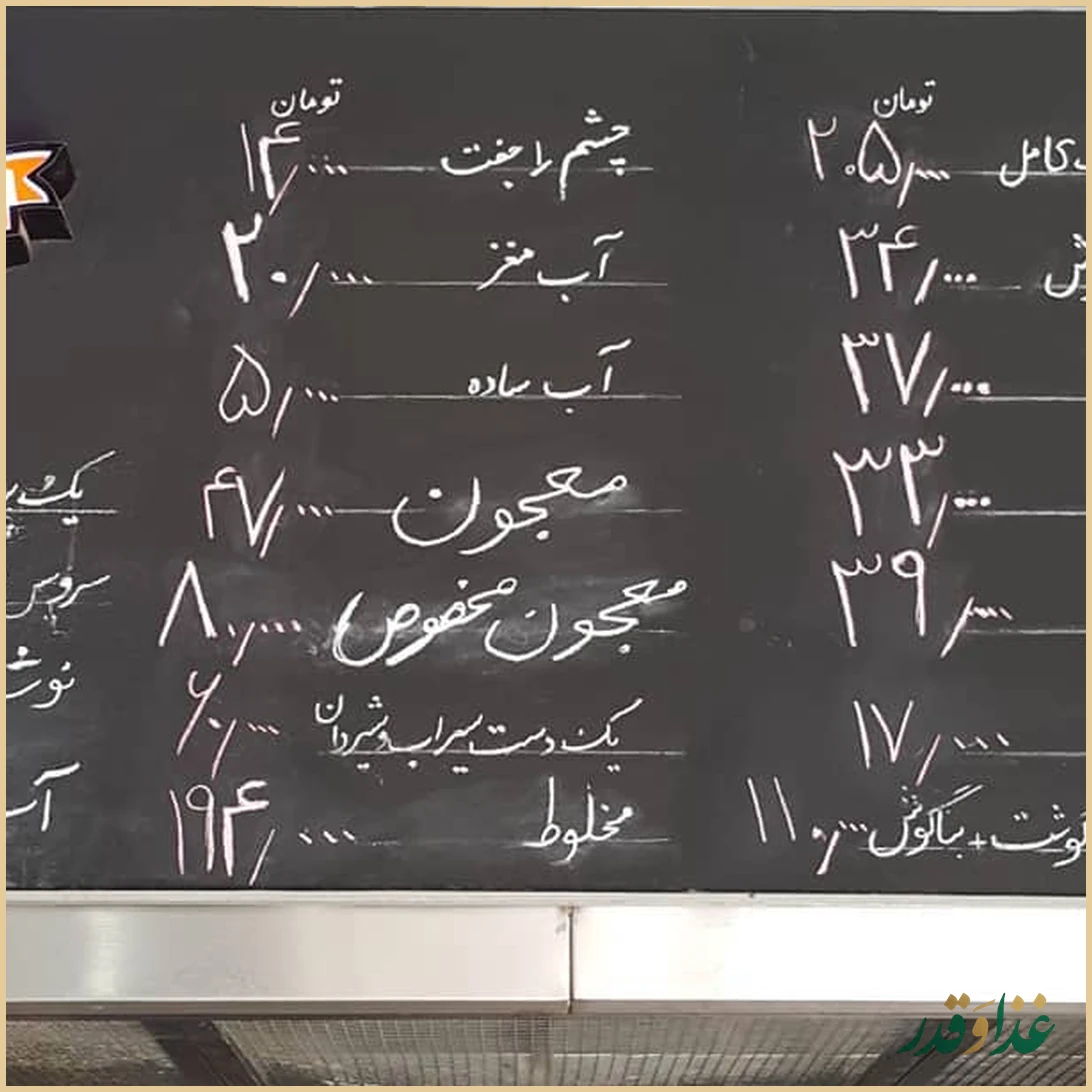 تومان
کامل ۲۰۵/۰۰۰
۳۴/۰۰۰
۳۷/۰۰۰
۳۳/۰۰۰
۳۹/۰۰۰
۱۷/۰۰۰
+ بناگوش ۱۱۰/۰۰۰
تومان
چشم را جفت ۱۴/۰۰۰
آب مغز ۲۰/۰۰۰
آب ساده ۵/۰۰۰
معجون ۴۷/۰۰۰
معجون مخصوص ۸۰/۰۰۰
یک دست سیراب و شیردان ۶۰/۰۰۰
مخلوط ۱۹۴/۰۰۰
یک
سرویس
غذا و قدر